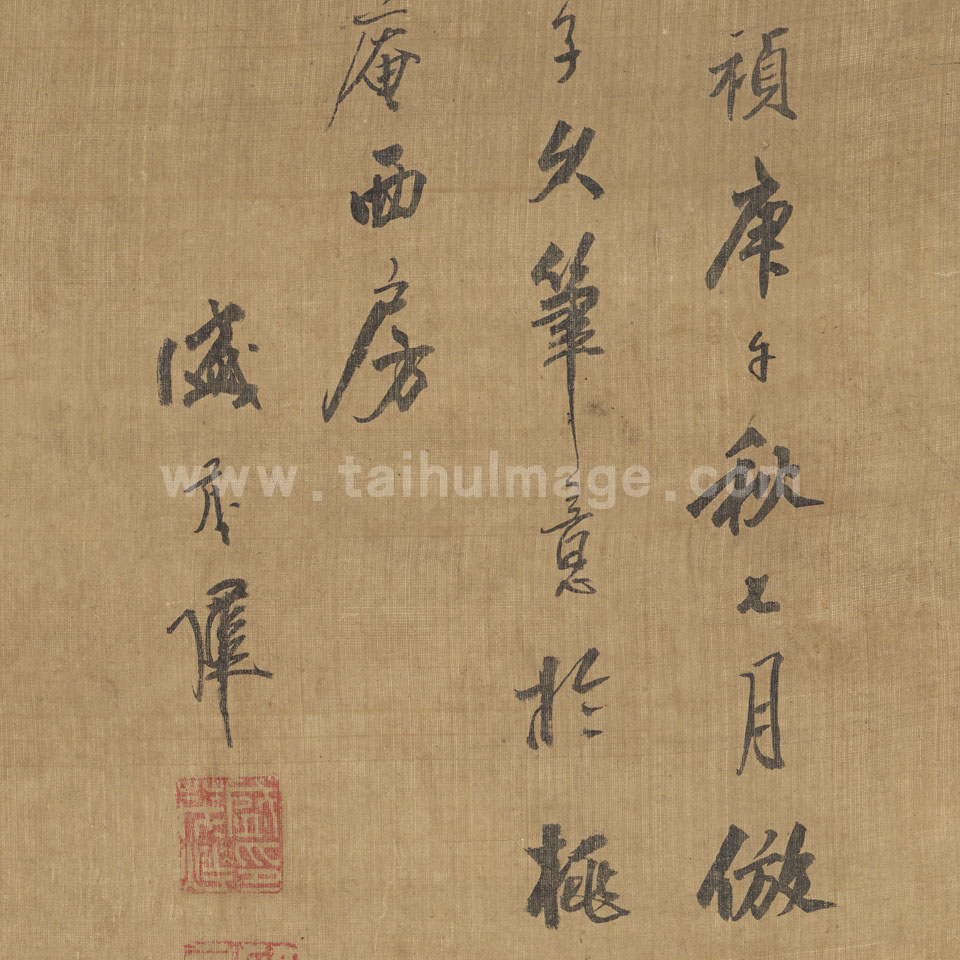 禎庚午秋七月倣
子久筆意於桃
庵西房
盛茂燁
www.taihuImage.com